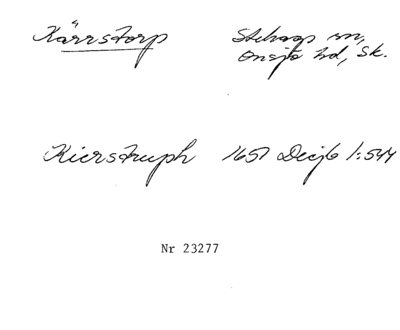 Kärrstorp Stehags sn,
Onsjö hd, Sk.
Kierstruph 1657 Decjb 1:544
Nr 23277